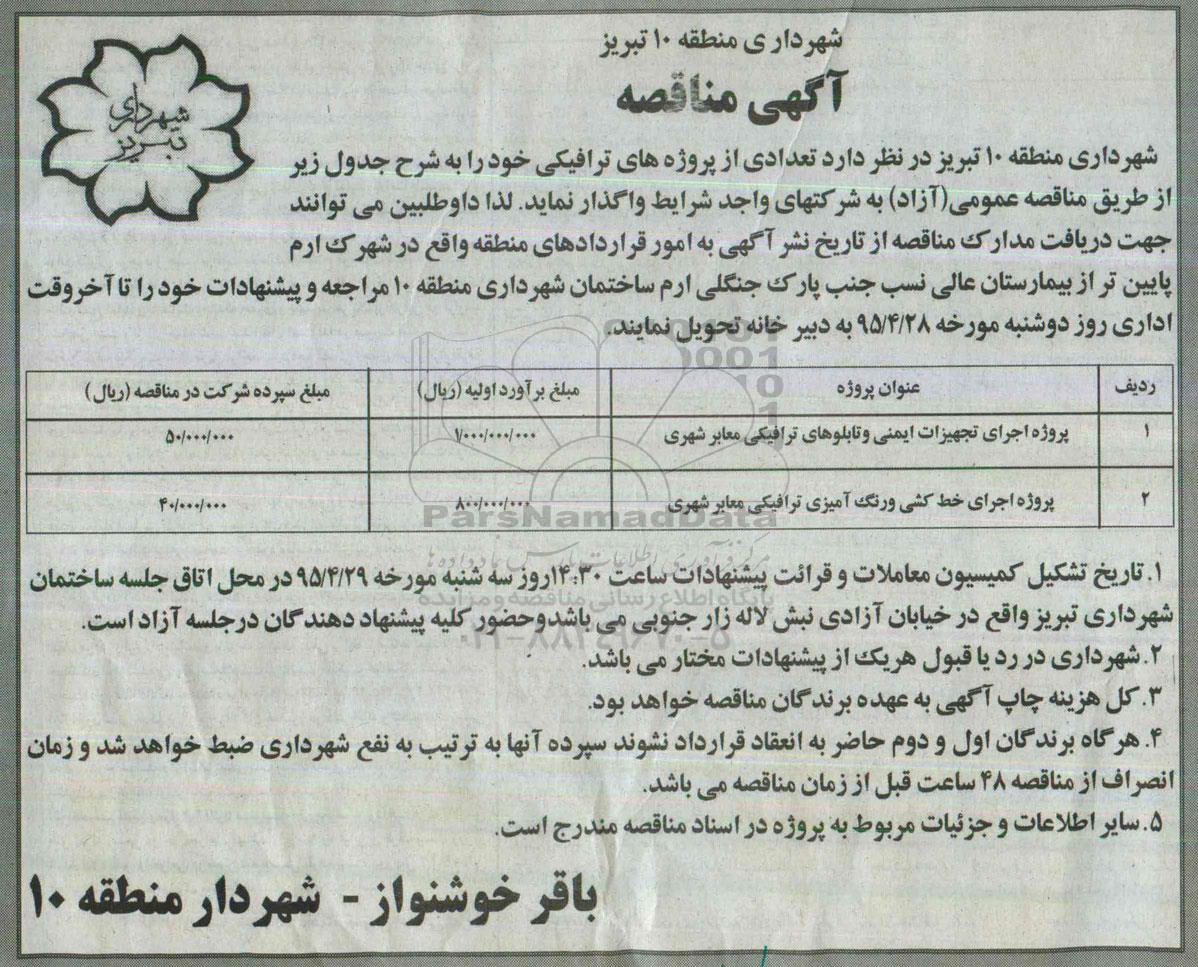 شهرداری منطقه ۱۰ تبریز
آگهی مناقصه
شهرداری تبریز
شهرداری منطقه ۱۰ تبریز در نظر دارد تعدادی از پروژه های ترافیکی خود را به شرح جدول زیر
از طریق مناقصه عمومی(آزاد) به شرکتهای واجد شرایط واگذار نماید. لذا داوطلبین می توانند
جهت دریافت مدارک مناقصه از تاریخ نشر آگهی به امور قراردادهای منطقه واقع در شهرک ارم
پایین تر از بیمارستان عالی نسب جنب پارک جنگلی ارم ساختمان شهرداری منطقه ۱۰ مراجعه و پیشنهادات خود را تا آخر وقت
اداری روز دوشنبه مورخه ۹۵/۴/۲۸ به دبیر خانه تحویل نمایند.
ردیف عنوان پروژه مبلغ برآورد اولیه (ریال) مبلغ سپرده شرکت در مناقصه (ریال)
۱ پروژه اجرای تجهیزات ایمنی وتابلوهای ترافیکی معابر شهری ۱/۰۰۰/۰۰۰/۰۰۰ ۵۰/۰۰۰/۰۰۰
۲ پروژه اجرای خط کشی ورنگ آمیزی ترافیکی معابر شهری ۸۰۰/۰۰۰/۰۰۰ ۴۰/۰۰۰/۰۰۰
ParsNamadData
مرکز فرآوری اطلاعات پارس نماد داده ها
پایگاه اطلاع رسانی مناقصه و مزایده
۱. تاریخ تشکیل کمیسیون معاملات و قرائت پیشنهادات ساعت ۱۴:۳۰روز سه شنبه مورخه ۹۵/۴/۲۹ در محل اتاق جلسه ساختمان
شهرداری تبریز واقع در خیابان آزادی نبش لاله زار جنوبی می باشدوحضور کلیه پیشنهاد دهندگان درجلسه آزاد است.
۲. شهرداری در رد یا قبول هریک از پیشنهادات مختار می باشد.
۳. کل هزینه چاپ آگهی به عهده برندگان مناقصه خواهد بود.
۴. هرگاه برندگان اول و دوم حاضر به انعقاد قرارداد نشوند سپرده آنها به ترتیب به نفع شهرداری ضبط خواهد شد و زمان
انصراف از مناقصه ۴۸ ساعت قبل از زمان مناقصه می باشد.
۵. سایر اطلاعات و جزئیات مربوط به پروژه در اسناد مناقصه مندرج است.
باقر خوشنواز - شهردار منطقه ۱۰